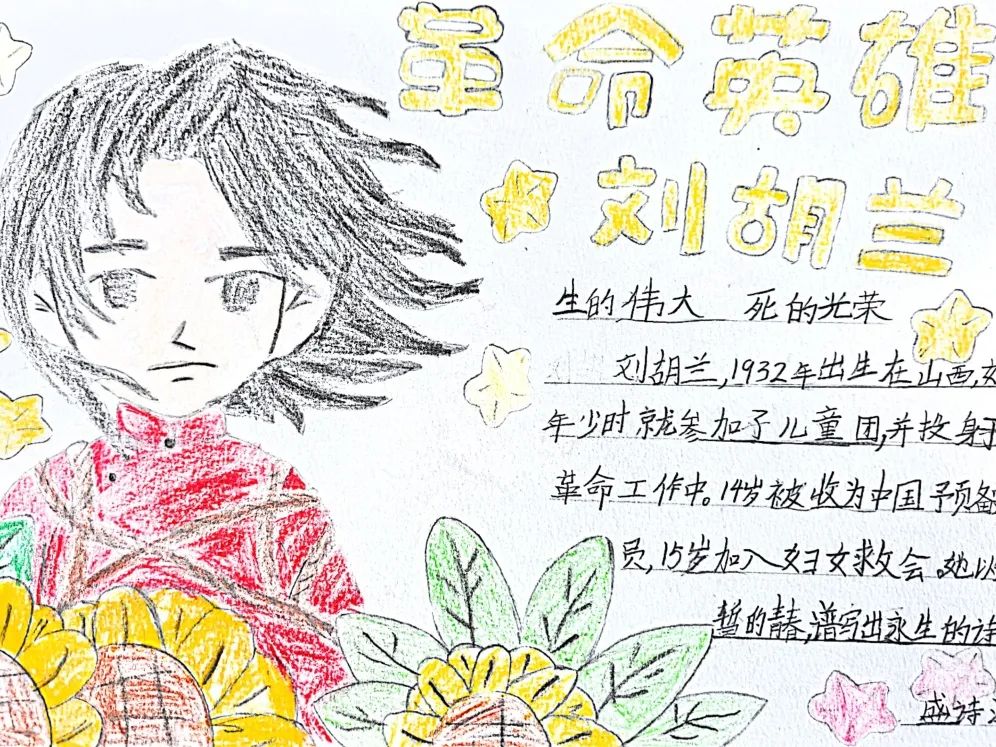 革命英雄
刘胡兰
生的伟大 死的光荣
刘胡兰,1932年出生在山西,
年少时就参加了儿童团,并投身于
革命工作中。14岁被收为中国预备
员,15岁加入妇女救会。她以
暂的青春,谱写出永生的诗
盛诗